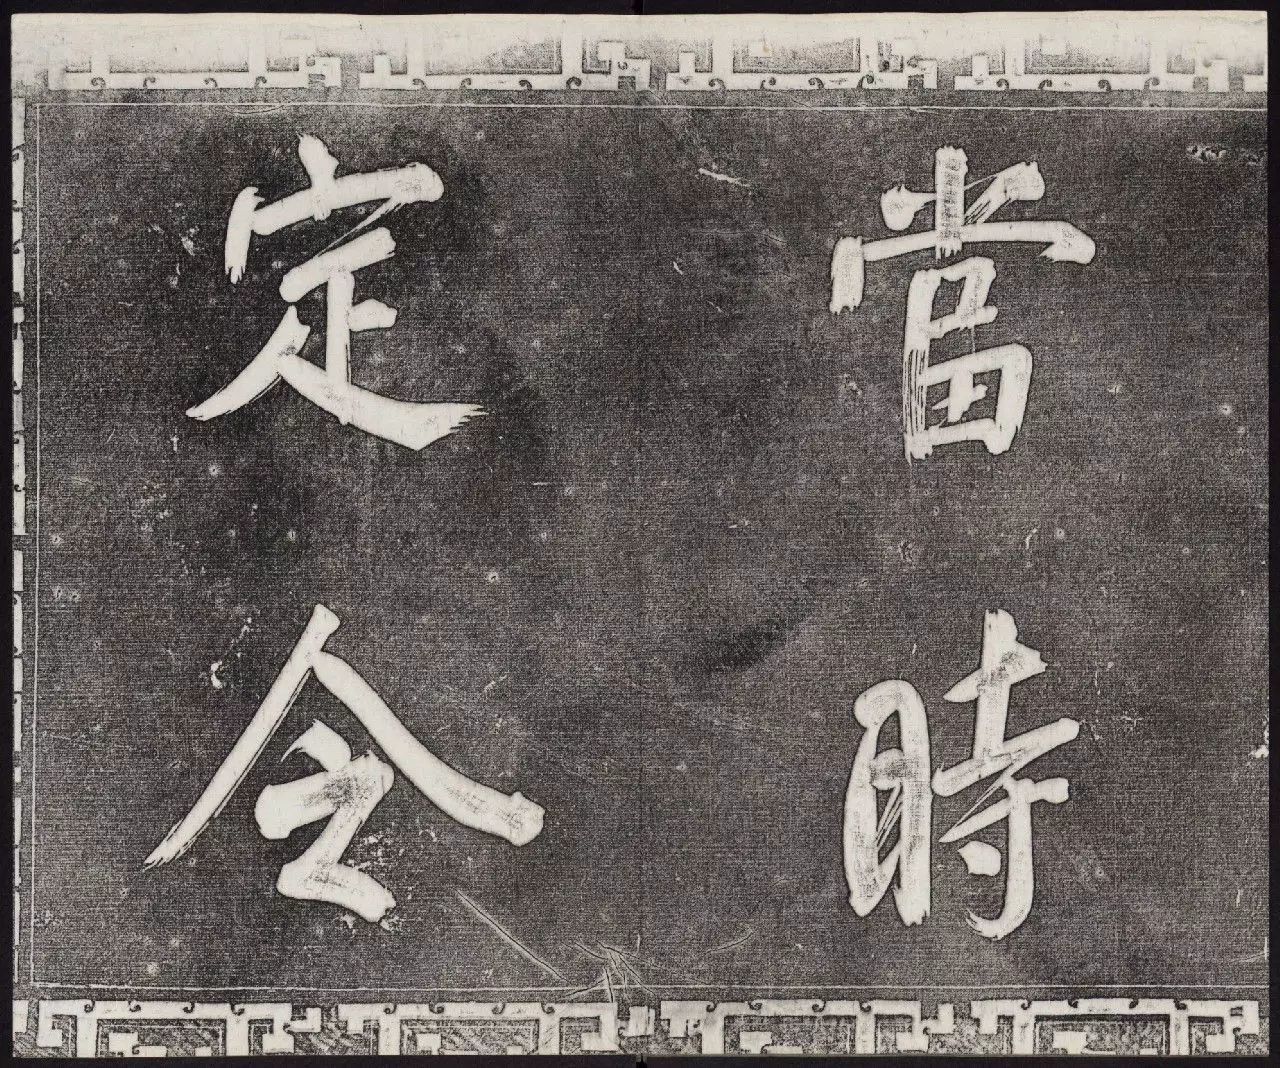 當時
定令